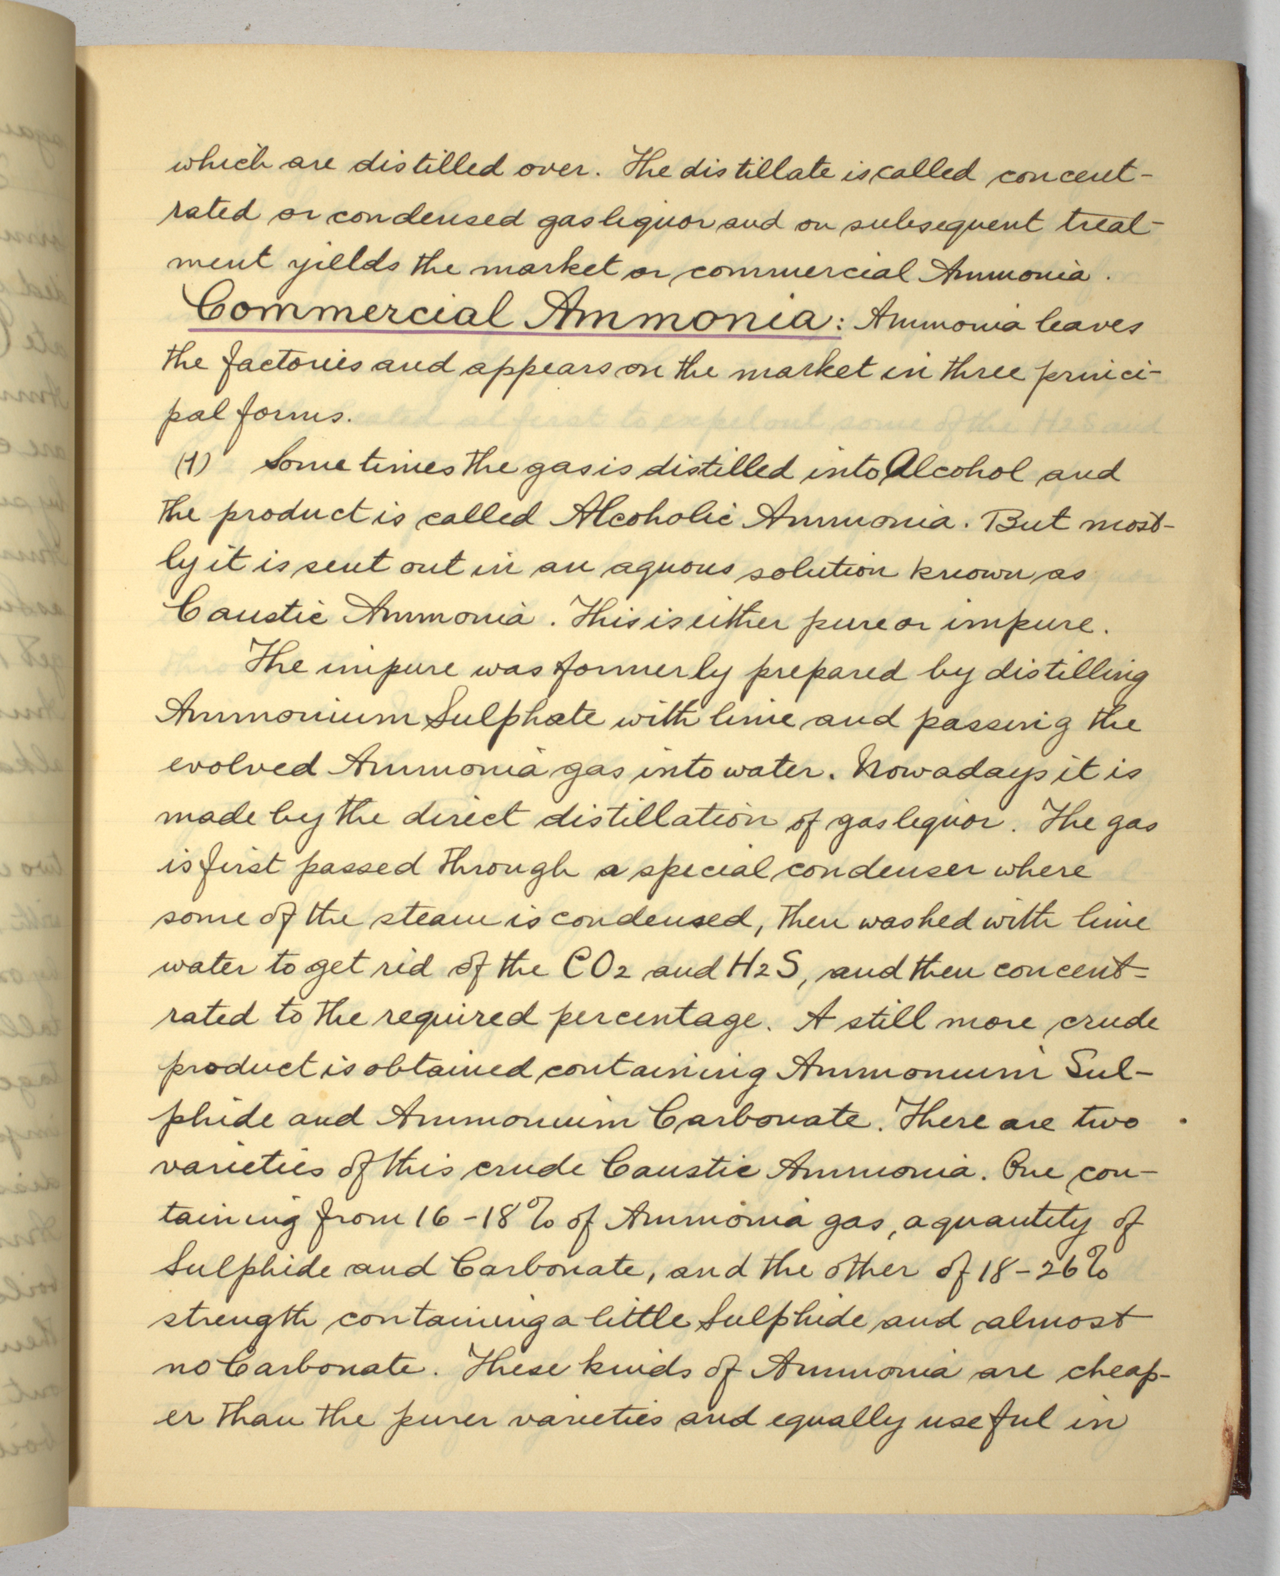 which are distilled over. The distillate is called concent-
rated or condensed gas liquor and on subsequent treat-
ment yields the market or commercial Ammonia.
Commercial Ammonia: Ammonia leaves
the factories and appears on the market in three princi-
pal forms.
(1) Sometimes the gas is distilled into Alcohol and
the product is called Alcoholic Ammonia. But most-
ly it is sent out in an aquous solution known as
Caustic Ammonia. This is either pure or impure.
The impure was formerly prepared by distilling
Ammonium Sulphate with lime and passing the
evolved Ammonia gas into water. Nowadays it is
made by the direct distillation of gas liquor. The gas
is first passed through a special condenser where
some of the steam is condensed, then washed with lime
water to get rid of the CO2 and H2S, and then concent-
rated to the required percentage. A still more crude
product is obtained containing Ammonium Sul-
phide and Ammonium Carbonate. There are two
varieties of this crude Caustic Ammonia. One con-
taining from 16-18% of Ammonia gas, a quantity of
Sulphide and Carbonate, and the other of 18-26%
strength containing a little Sulphide and almost
no Carbonate. These kinds of Ammonia are cheap-
er than the purer varieties and equally useful in